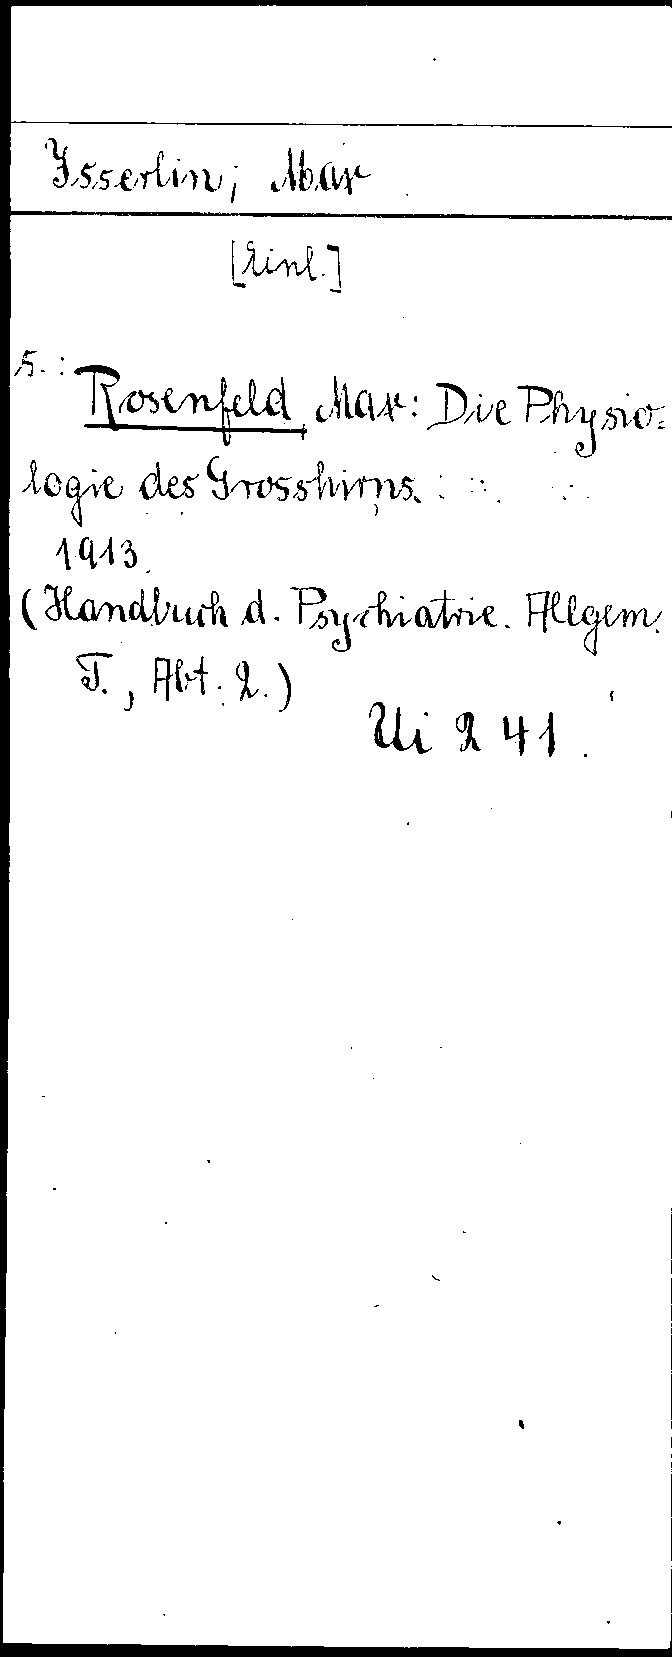 Isserlin, Max
[Einl.]
s.:
Rosenfeld, Max: Die Physio-
logie des Grosshirns.
1913.
(Handbuch d. Psychiatrie. Allgem.
T., Abt. 2.)
Ui 241.